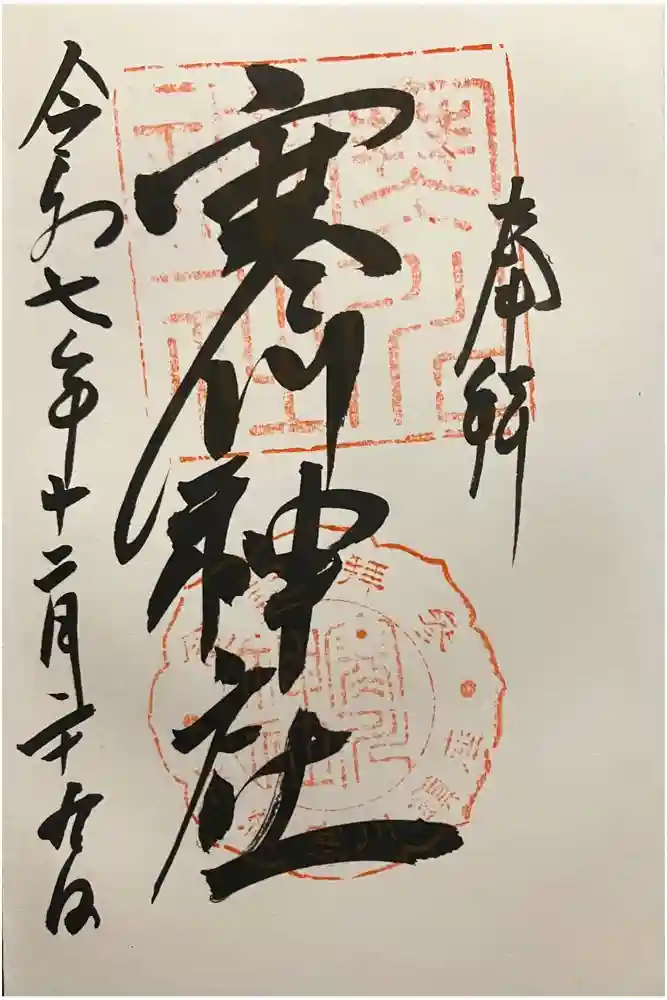 奉拝
寒川神社
令和七年十二月二十九日